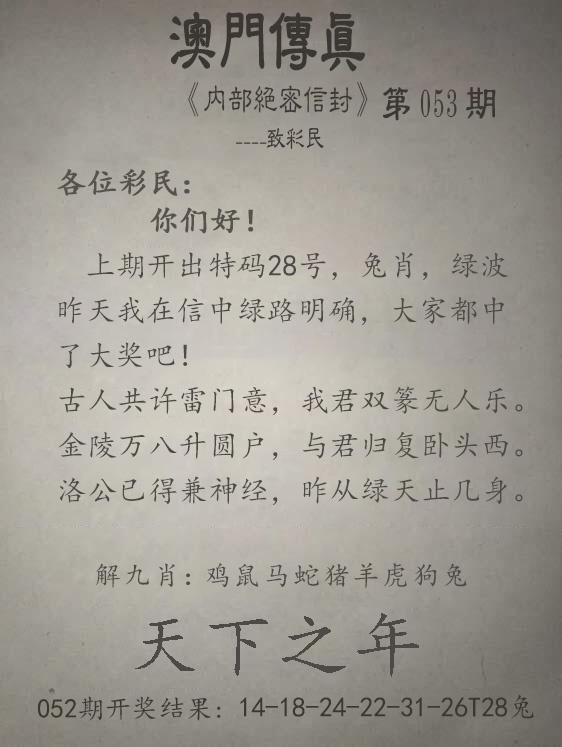 澳門傳眞
《内部絕密信封》第053期
----致彩民
各位彩民：
你们好！
上期开出特码28号，兔肖，绿波
昨天我在信中绿路明确，大家都中
了大奖吧！
古人共许雷门意，我君双篆无人乐。
金陵万八升圆户，与君归复卧头西。
洛公已得兼神经，昨从绿天止几身。
解九肖：鸡鼠马蛇猪羊虎狗兔
天下之年
052期开奖结果：14-18-24-22-31-26T28兔